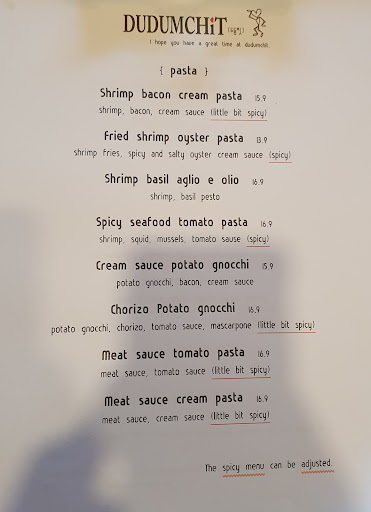 DUDUMCHiT (두둠칫)
I hope you have a great time at dudumchit.
{ pasta }
Shrimp bacon cream pasta 15.9
shrimp, bacon, cream sauce (little bit spicy)
Fried shrimp oyster pasta 13.9
shrimp fries, spicy and salty oyster cream sauce (spicy)
Shrimp basil aglio e olio 16.9
shrimp, basil pesto
Spicy seafood tomato pasta 16.9
shrimp, squid, mussels, tomato sause (spicy)
Cream sauce potato gnocchi 15.9
potato gnocchi, bacon, cream sauce
Chorizo Potato gnocchi 16.9
potato gnocchi, chorizo, tomato sauce, mascarpone (little bit spicy)
Meat sauce tomato pasta 16.9
meat sauce, tomato sauce (little bit spicy)
Meat sauce cream pasta 16.9
meat sauce, cream sauce (little bit spicy)
The spicy menu can be adjusted.